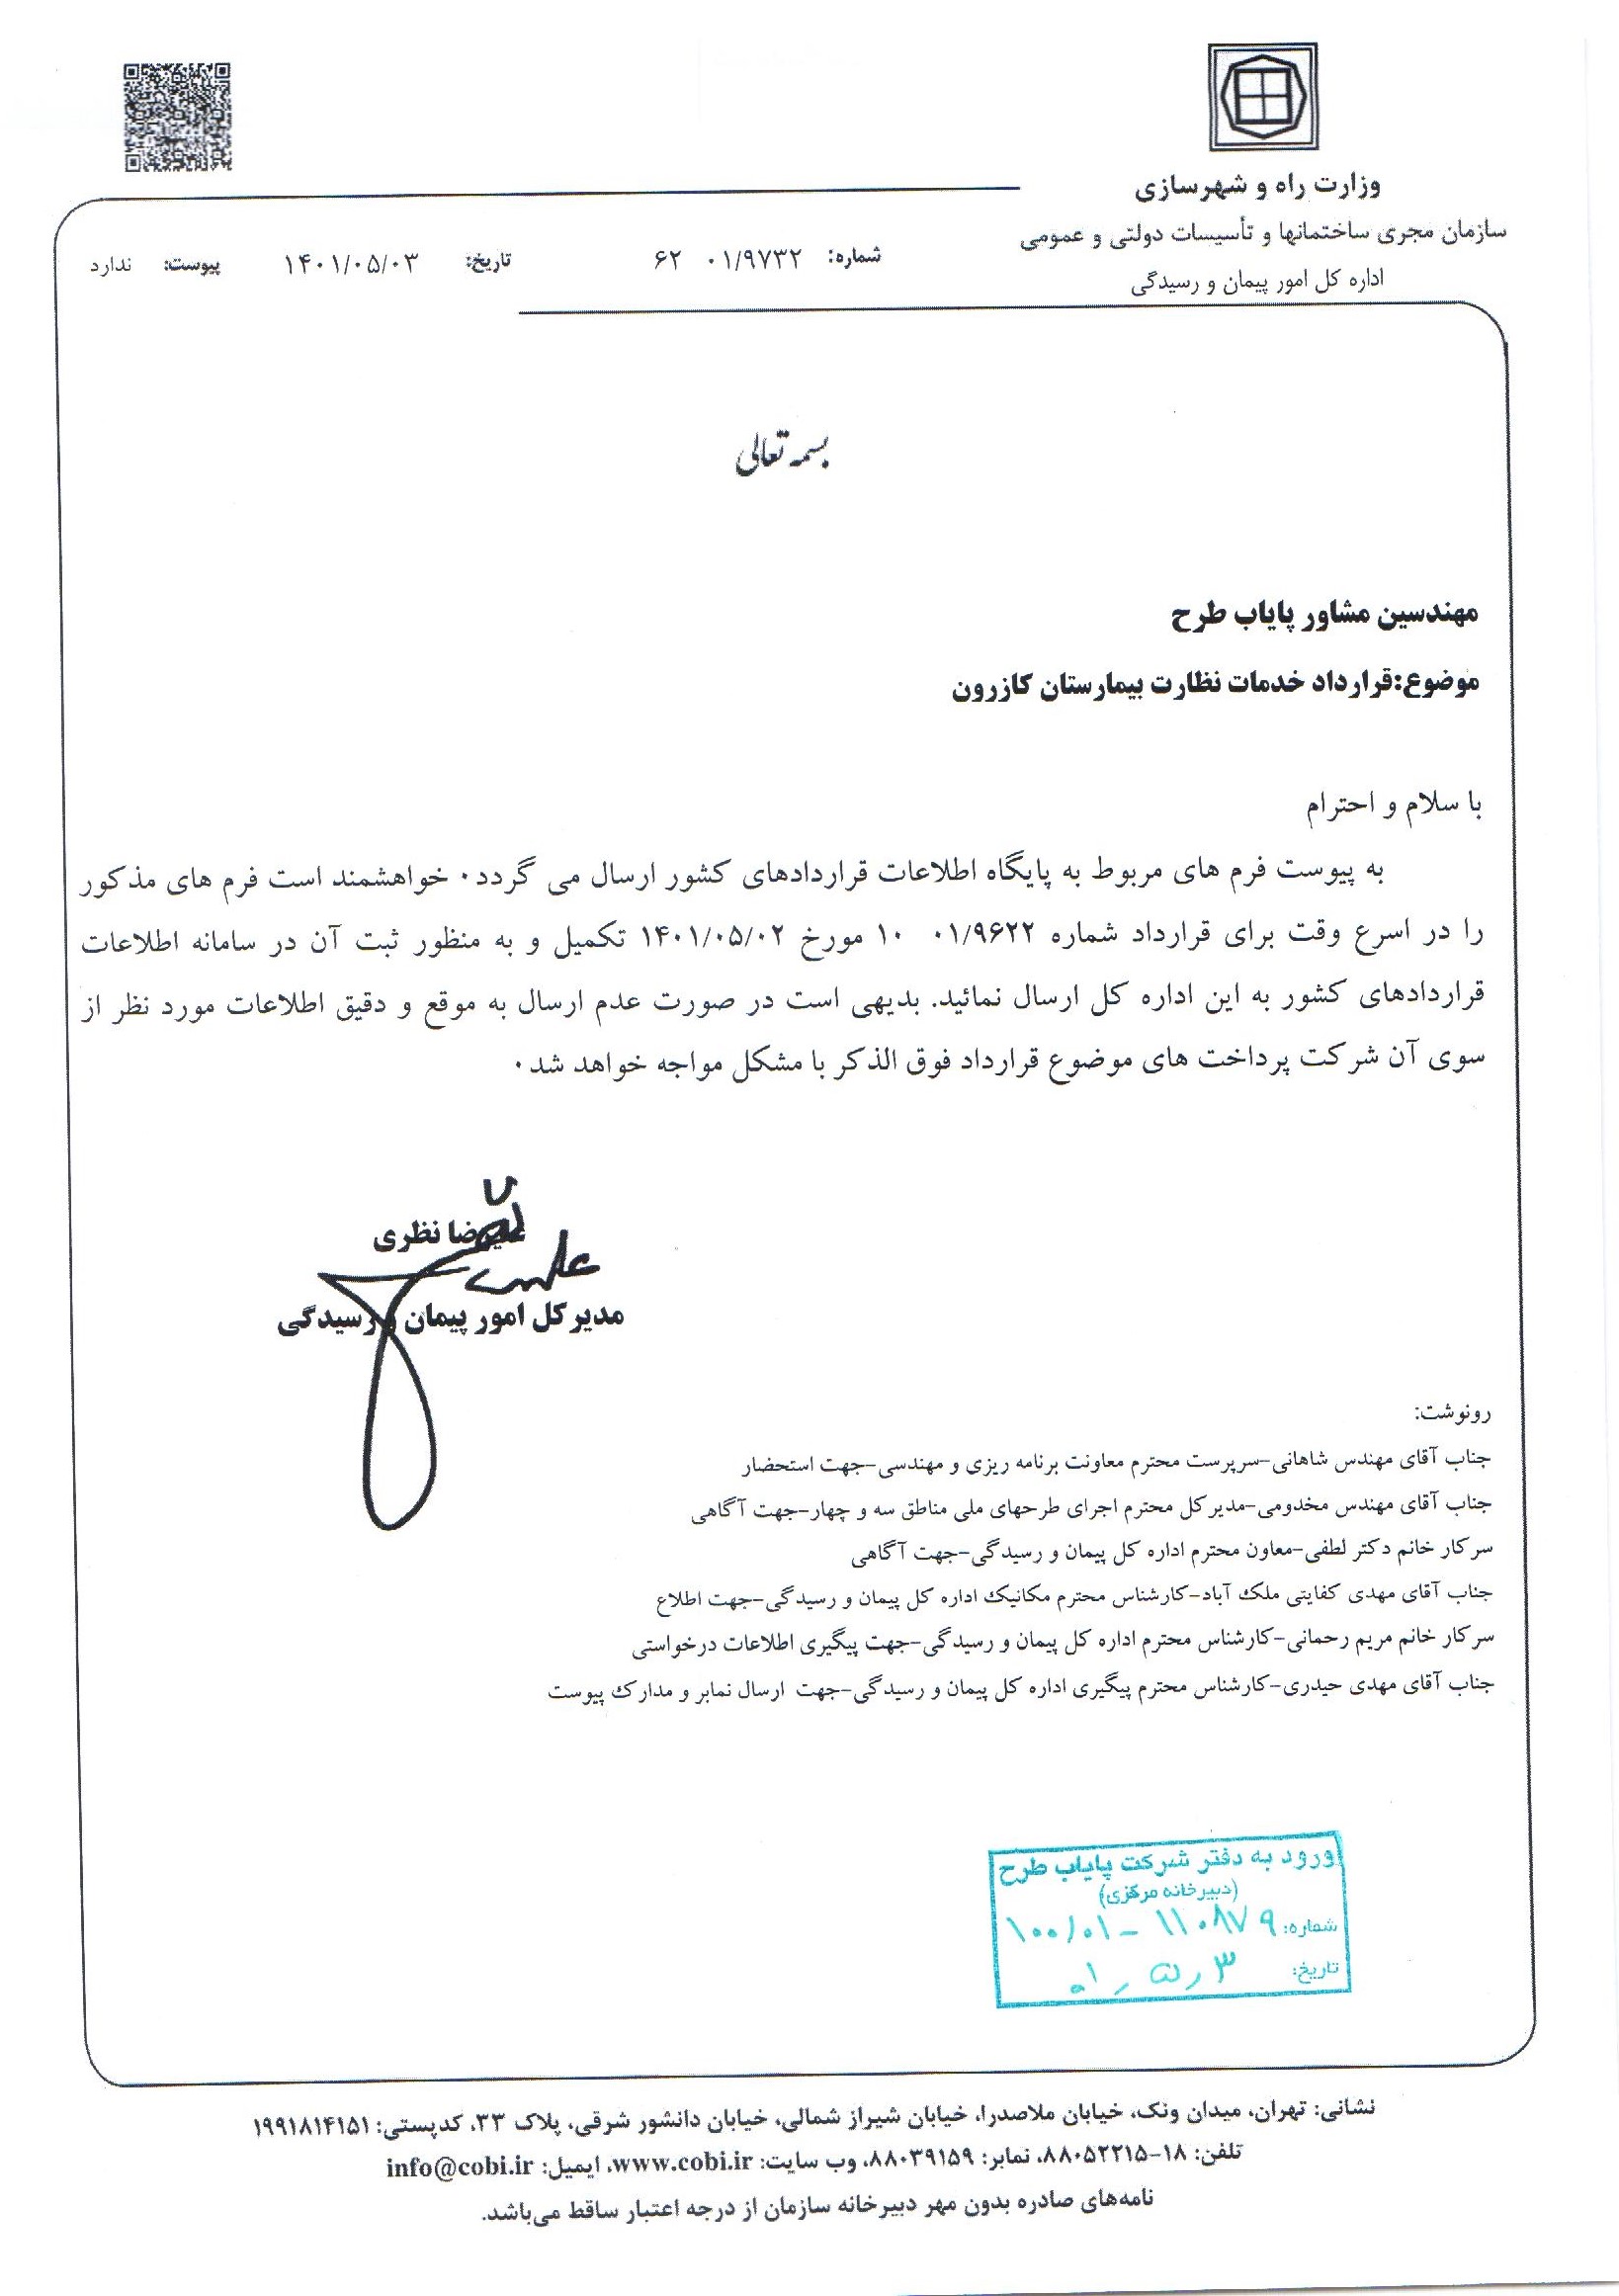 وزارت راه و شهرسازی
سازمان مجری ساختمانها و تأسیسات دولتی و عمومی
اداره کل امور پیمان و رسیدگی
شماره: ۰۱/۹۷۳۲ ۶۲ تاریخ: ۱۴۰۱/۰۵/۰۳ پیوست: ندارد
بسمه تعالی
مهندسین مشاور پایاب طرح
موضوع:قرارداد خدمات نظارت بیمارستان کازرون
با سلام و احترام
به پیوست فرم های مربوط به پایگاه اطلاعات قراردادهای کشور ارسال می گردد۰ خواهشمند است فرم های مذکور
را در اسرع وقت برای قرارداد شماره ۰۱/۹۶۲۲ ۱۰ مورخ ۱۴۰۱/۰۵/۰۲ تکمیل و به منظور ثبت آن در سامانه اطلاعات
قراردادهای کشور به این اداره کل ارسال نمائید. بدیهی است در صورت عدم ارسال به موقع و دقیق اطلاعات مورد نظر از
سوی آن شرکت پرداخت های موضوع قرارداد فوق الذکر با مشکل مواجه خواهد شد۰
علیرضا نظری
مدیر کل امور پیمان و رسیدگی
رونوشت:
جناب آقای مهندس شاهانی-سرپرست محترم معاونت برنامه ریزی و مهندسی-جهت استحضار
جناب آقای مهندس مخدومی-مدیر کل محترم اجرای طرحهای ملی مناطق سه و چهار-جهت آگاهی
سرکار خانم دکتر لطفی-معاون محترم اداره کل پیمان و رسیدگی-جهت آگاهی
جناب آقای مهدی کفایتی ملک آباد-کارشناس محترم مکانیک اداره کل پیمان و رسیدگی-جهت اطلاع
سرکار خانم مریم رحمانی-کارشناس محترم اداره کل پیمان و رسیدگی-جهت پیگیری اطلاعات درخواستی
جناب آقای مهدی حیدری-کارشناس محترم پیگیری اداره کل پیمان و رسیدگی-جهت ارسال نمابر و مدارک پیوست
ورود به دفتر شرکت پایاب طرح
(دبیرخانه مرکزی)
شماره: ۱۰۰/۰۱ - ۱۱۰۸۷۹
تاریخ: ۰۱ ر ۵ ر ۳
نشانی: تهران، میدان ونک، خیابان ملاصدرا، خیابان شیراز شمالی، خیابان دانشور شرقی، پلاک ۳۳، کدپستی: ۱۹۹۱۸۱۴۱۵۱
تلفن: ۱۸-۸۸۰۵۲۲۱۵، نمابر: ۸۸۰۳۹۱۵۹، وب سایت: www.cobi.ir، ایمیل: info@cobi.ir
نامه‌های صادره بدون مهر دبیرخانه سازمان از درجه اعتبار ساقط می‌باشد.